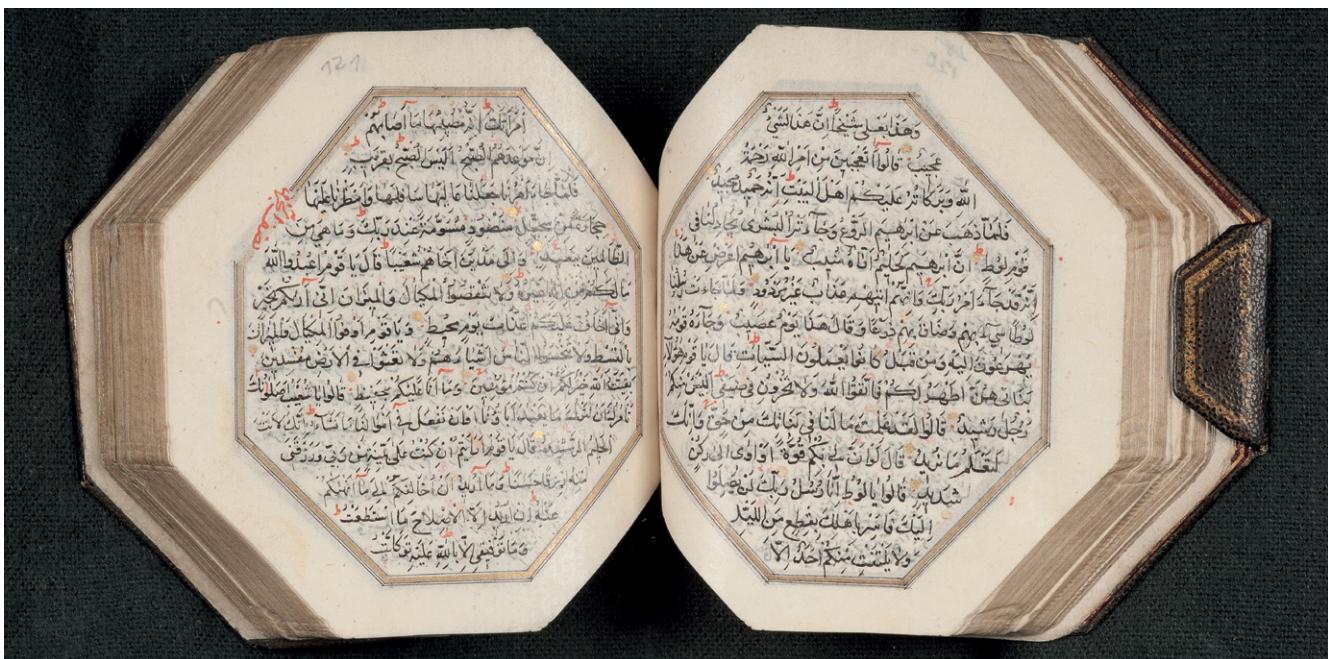 وهذا بعلى شيخا ان هذا لشئ
عجيب قالوا اتعجبين من امر الله رحمة
الله وبركاته عليكم اهل البيت انه حميد مجيد
فلما ذهب عن ابرهيم الروع وجاءته البشرى يجادلنا فى
قوم لوط ان ابرهيم لحليم اواه منيب يا ابرهيم اعرض عن هذا
انه قد جاء امر ربك وانهم اتيهم عذاب غير مردود ولما جاءت رسلنا
لوطا سىء بهم وضاق بهم ذرعا وقال هذا يوم عصيب وجاءه قومه
يهرعون اليه ومن قبل كانوا يعملون السيئات قال يا قوم هؤلاء
بناتى هن اطهر لكم فاتقوا الله ولا تخزون فى ضيفى اليس منكم
رجل رشيد قالوا لقد علمت ما لنا فى بناتك من حق وانك
لتعلم ما نريد قال لو ان لى بكم قوة او اوى الى ركن
شديد قالوا يا لوط انا رسل ربك لن يصلوا
اليك فاسر باهلك بقطع من الليل
ولا يلتفت منكم احد الا
121
امراتك انه مصيبها ما اصابهم
ان موعدهم الصبح اليس الصبح بقريب
فلما جاء امرنا جعلنا عاليها سافلها وامطرنا عليها
حجارة من سجيل منضود مسومة عند ربك وما هى من
الظالمين ببعيد والى مدين اخاهم شعيبا قال يا قوم اعبدوا الله
ما لكم من اله غيره ولا تنقصوا المكيال والميزان انى اريكم بخير
وانى اخاف عليكم عذاب يوم محيط ويا قوم اوفوا المكيال والميزان
بالقسط ولا تبخسوا الناس اشياءهم ولا تعثوا فى الارض مفسدين
بقيت الله خير لكم ان كنتم مؤمنين وما انا عليكم بحفيظ قالوا يا شعيب اصلوتك
تامرك ان نترك ما يعبد اباؤنا او ان نفعل فى اموالنا ما نشاء انك لانت
الحليم الرشيد قال يا قوم ارايتم ان كنت على بينة من ربى ورزقنى
منه رزقا حسنا وما اريد ان اخالفكم الى ما انهيكم
عنه ان اريد الا الاصلاح ما استطعت
وما توفيقى الا بالله عليه توكلت